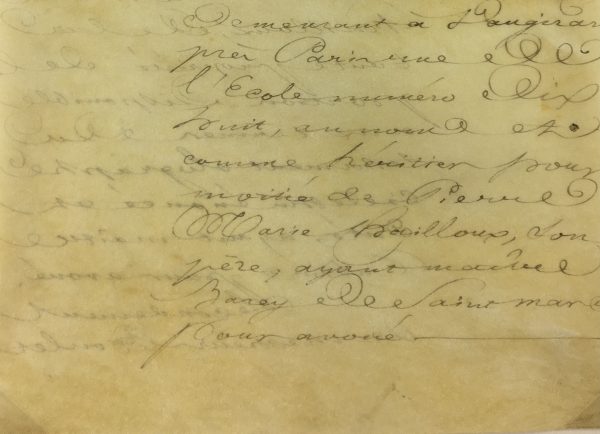 Demeurant à Vaugirar
près Paris rue de
l'Ecole numéro Dix
huit, au nom et
comme héritier pour
moitié de Pierre
Marie Bailloux, son
père, ayant maître
Barey de Saint mar
pour avoué